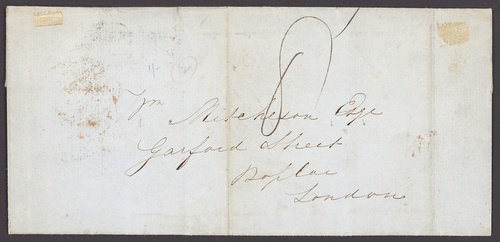 8
Wm Mitcheson Esqr
Garford Street
Poplar
London